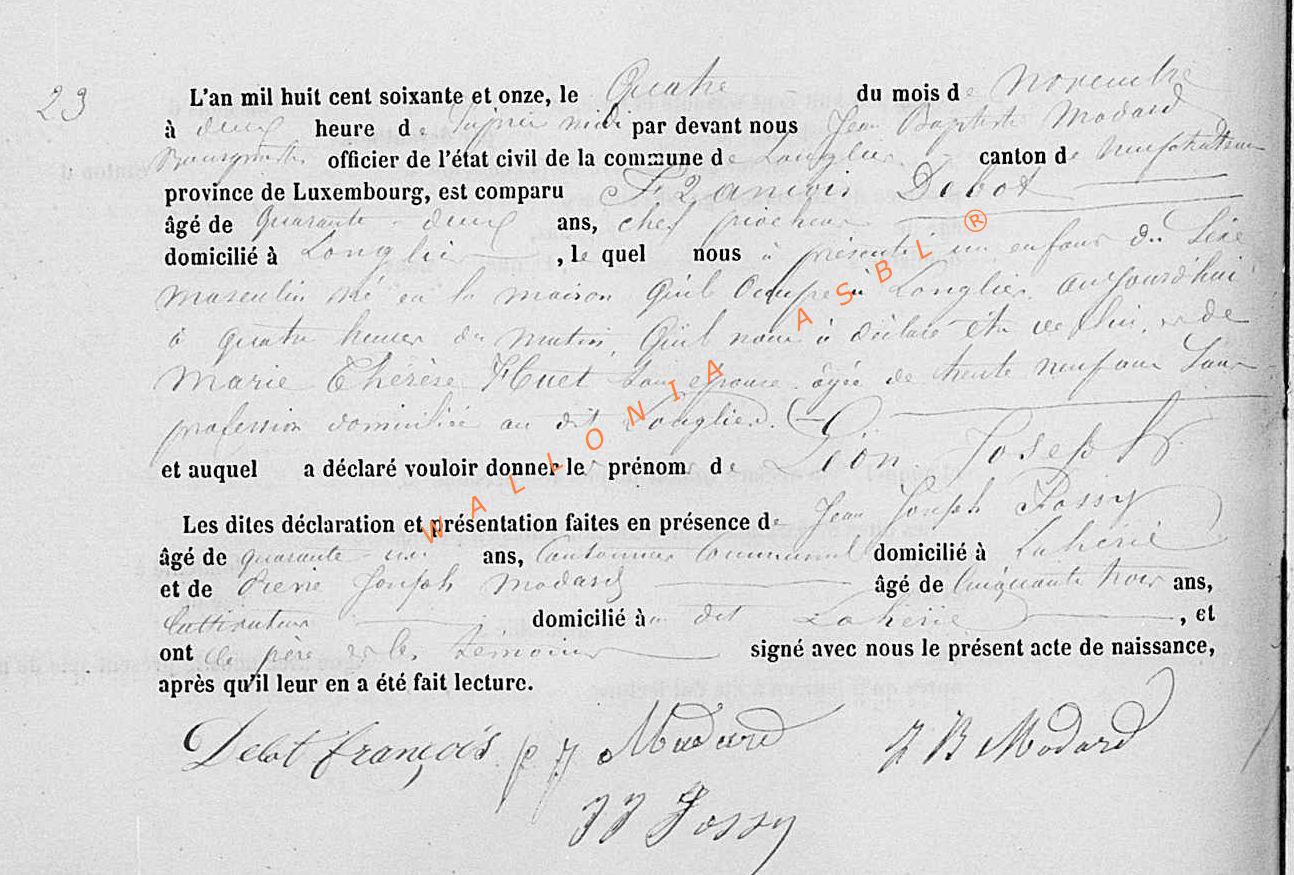 23
L'an mil huit cent soixante et onze, le Quatre du mois de novembre
à deux heure de l'après midi par devant nous Jean Baptiste Modard
Bourgmestre officier de l'état civil de la commune de Longlier canton de Neufchateau
province de Luxembourg, est comparu François Debot
âgé de quarante-deux ans, chef piocheur
domicilié à Longlier, le quel nous à présenté un enfant du Sexe
masculin né en la maison qu'il occupe à Longlier aujourd'hui
à quatre heures du matin, qu'il nous à déclaré être de lui et de
Marie Thérèse Huet son épouse âgée de trente neuf ans Sans
profession domiciliée au dit Longlier.
et auquel a déclaré vouloir donner les prénom de Léon Joseph
Les dites déclaration et présentation faites en présence de Jean Joseph Fossy
âgé de quarante-un ans, Cantonnier Communal domicilié à Laherie
et de Pierre Joseph Modard âgé de Cinquante trois ans,
Cultivateur domicilié àu dit Laherie, et
ont le père et les témoins signé avec nous le présent acte de naissance,
après qu'il leur en a été fait lecture.
Debot françois p j Modard J B Modard
J J Fossy
WALLONIA ASBL ®